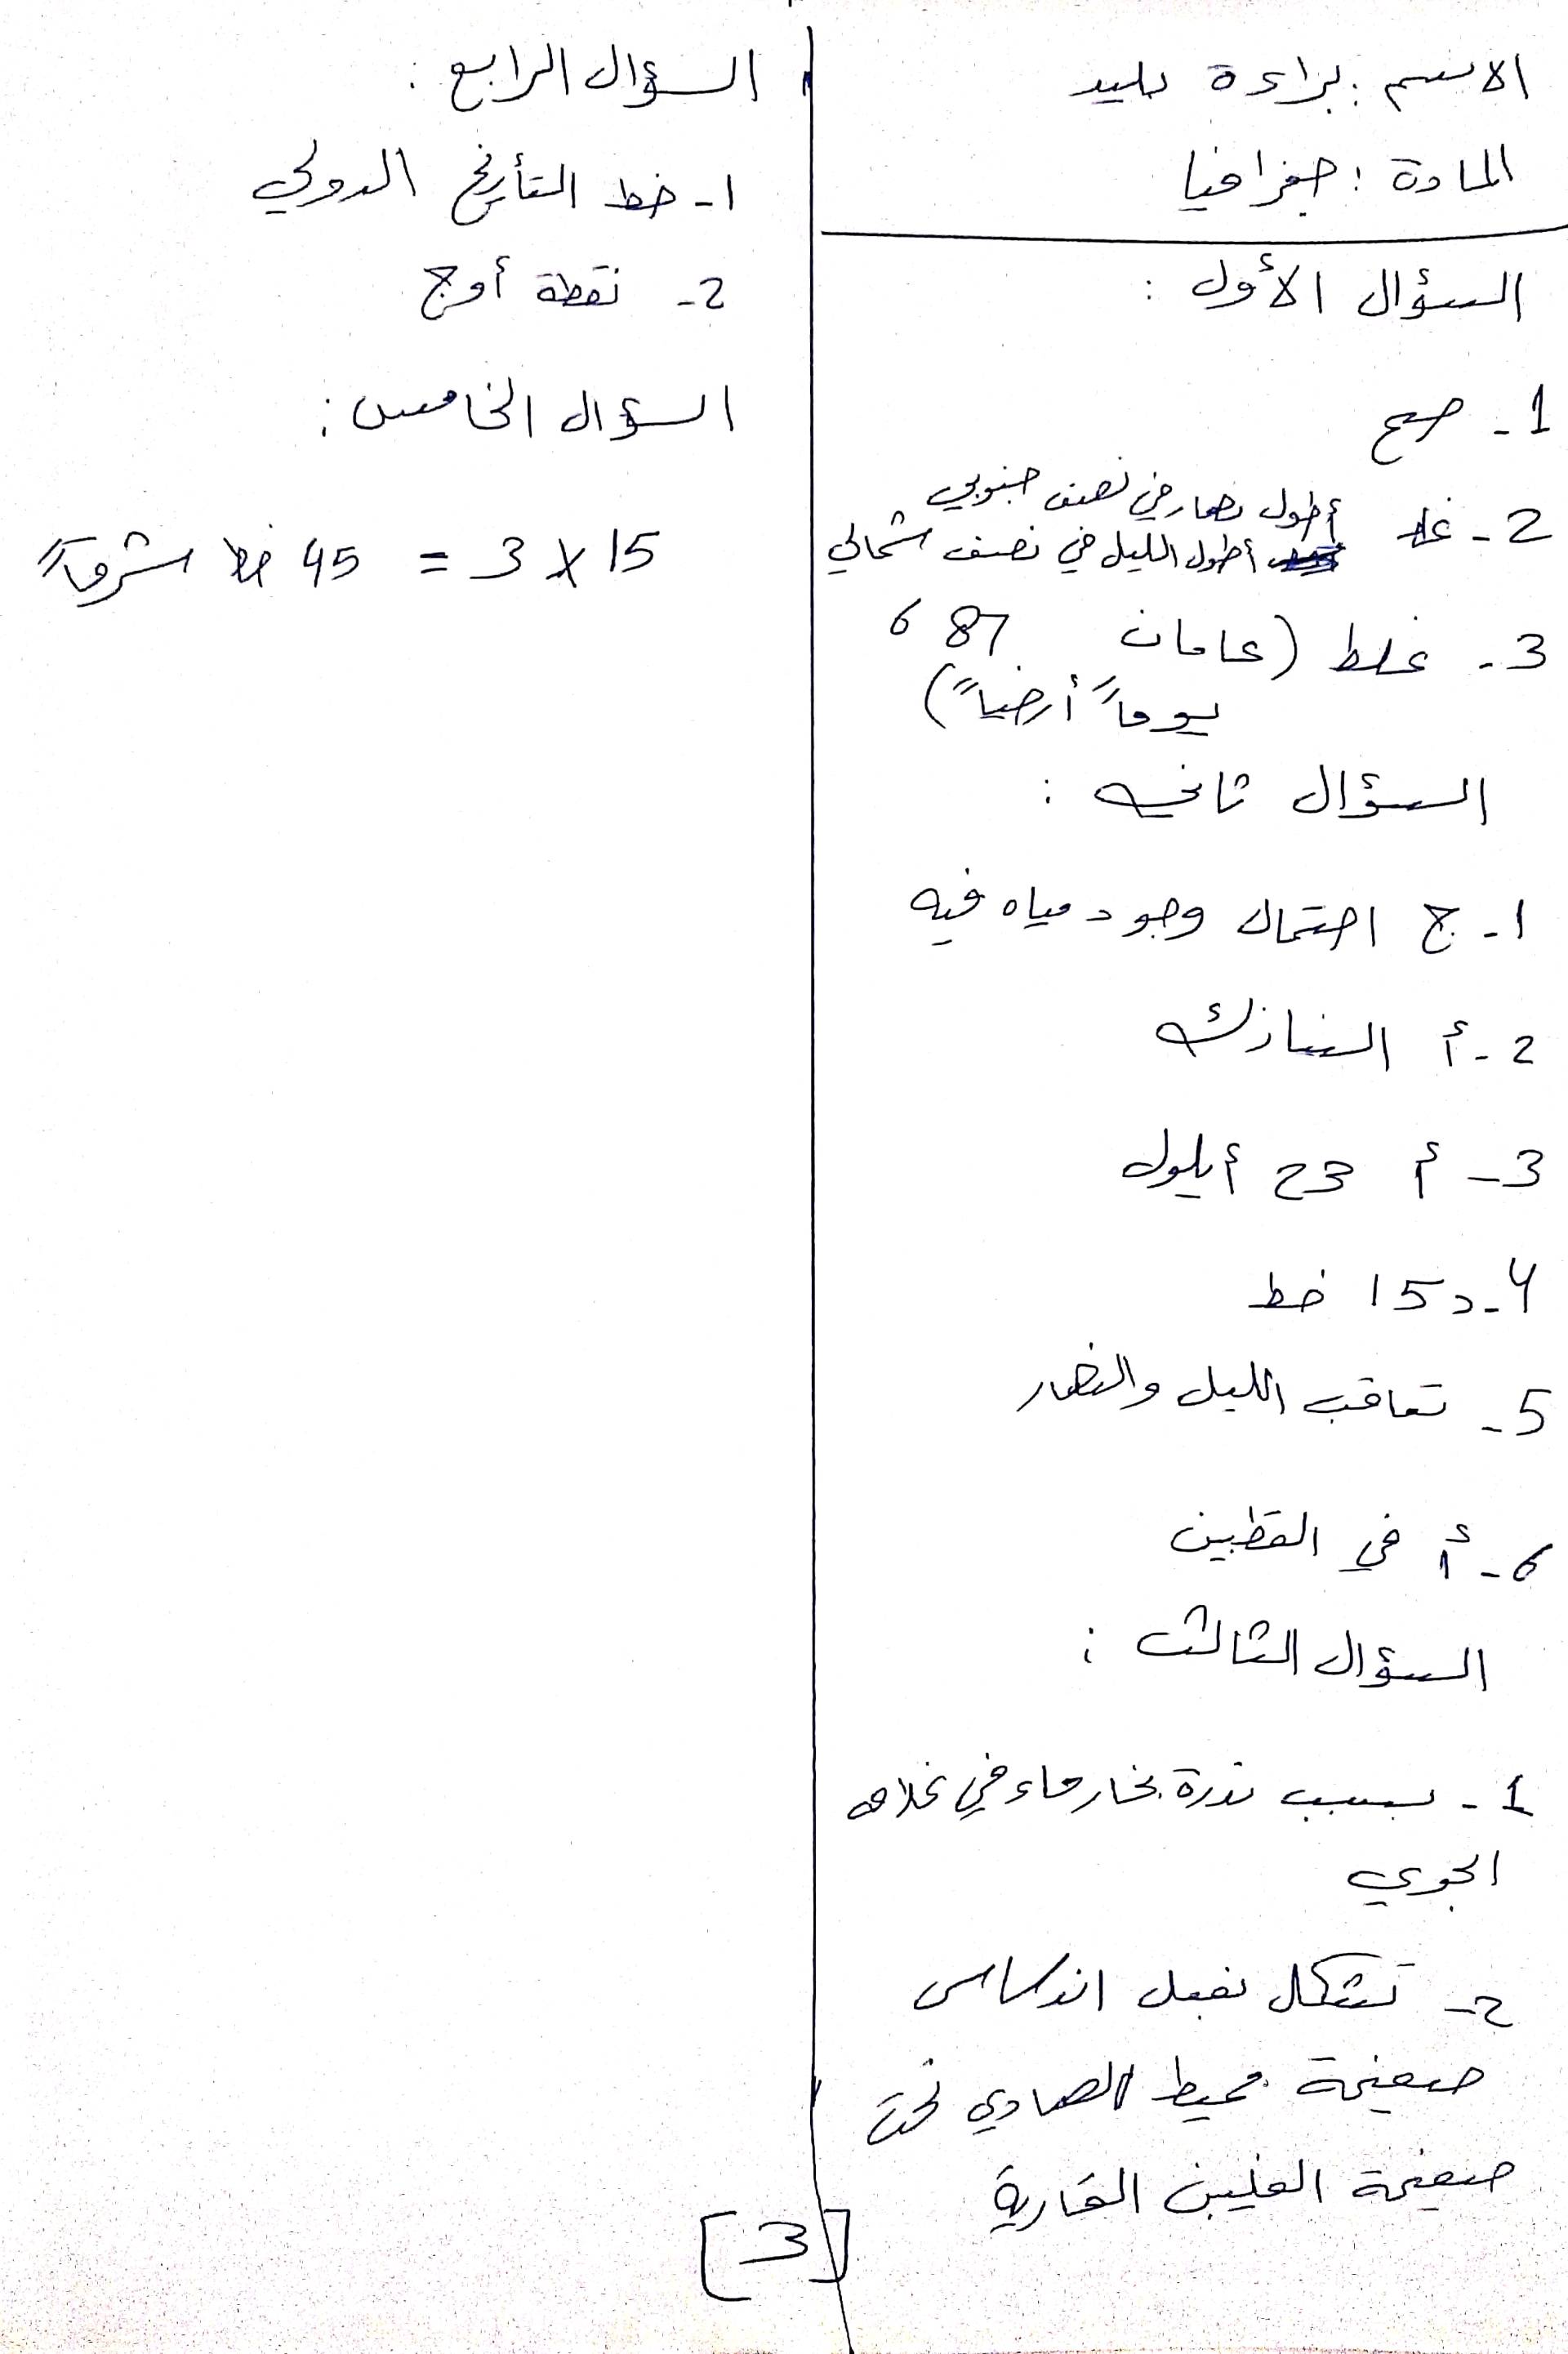 الاسم : براءة
المادة : جغرافيا
السؤال الأول :
1 - صح
2 - غلط أطول نهار في نصف جنوبي
أطول الليل في نصف شمالي
3 - غلط (عامان 687
يوماً أرضياً)
السؤال ثاني :
1 - ج احتمال وجود مياه فيه
2 - أ النيازك
3 - أ 23 أيلول
4 - د 15 خط
5 - تعاقب الليل والنهار
6 - أ في القطبين
السؤال الثالث :
1 - بسبب ندرة بخار ماء في غلافه
الجوي
2 - تشكل نفعل اندساس
صفيحة محيط الهادي تحت
صفيحة الفلبين القارية
[3]
السؤال الرابع :
1 - خط التأريخ الدولي
2 - نقطة أوج
السؤال الخامس :
15 × 3 = 45 خط شرقاً